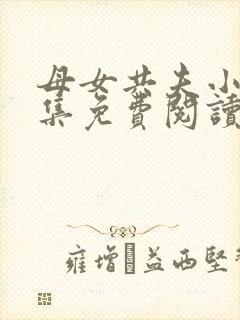 母女共夫小
集免費閱讀
雍增·益西堅